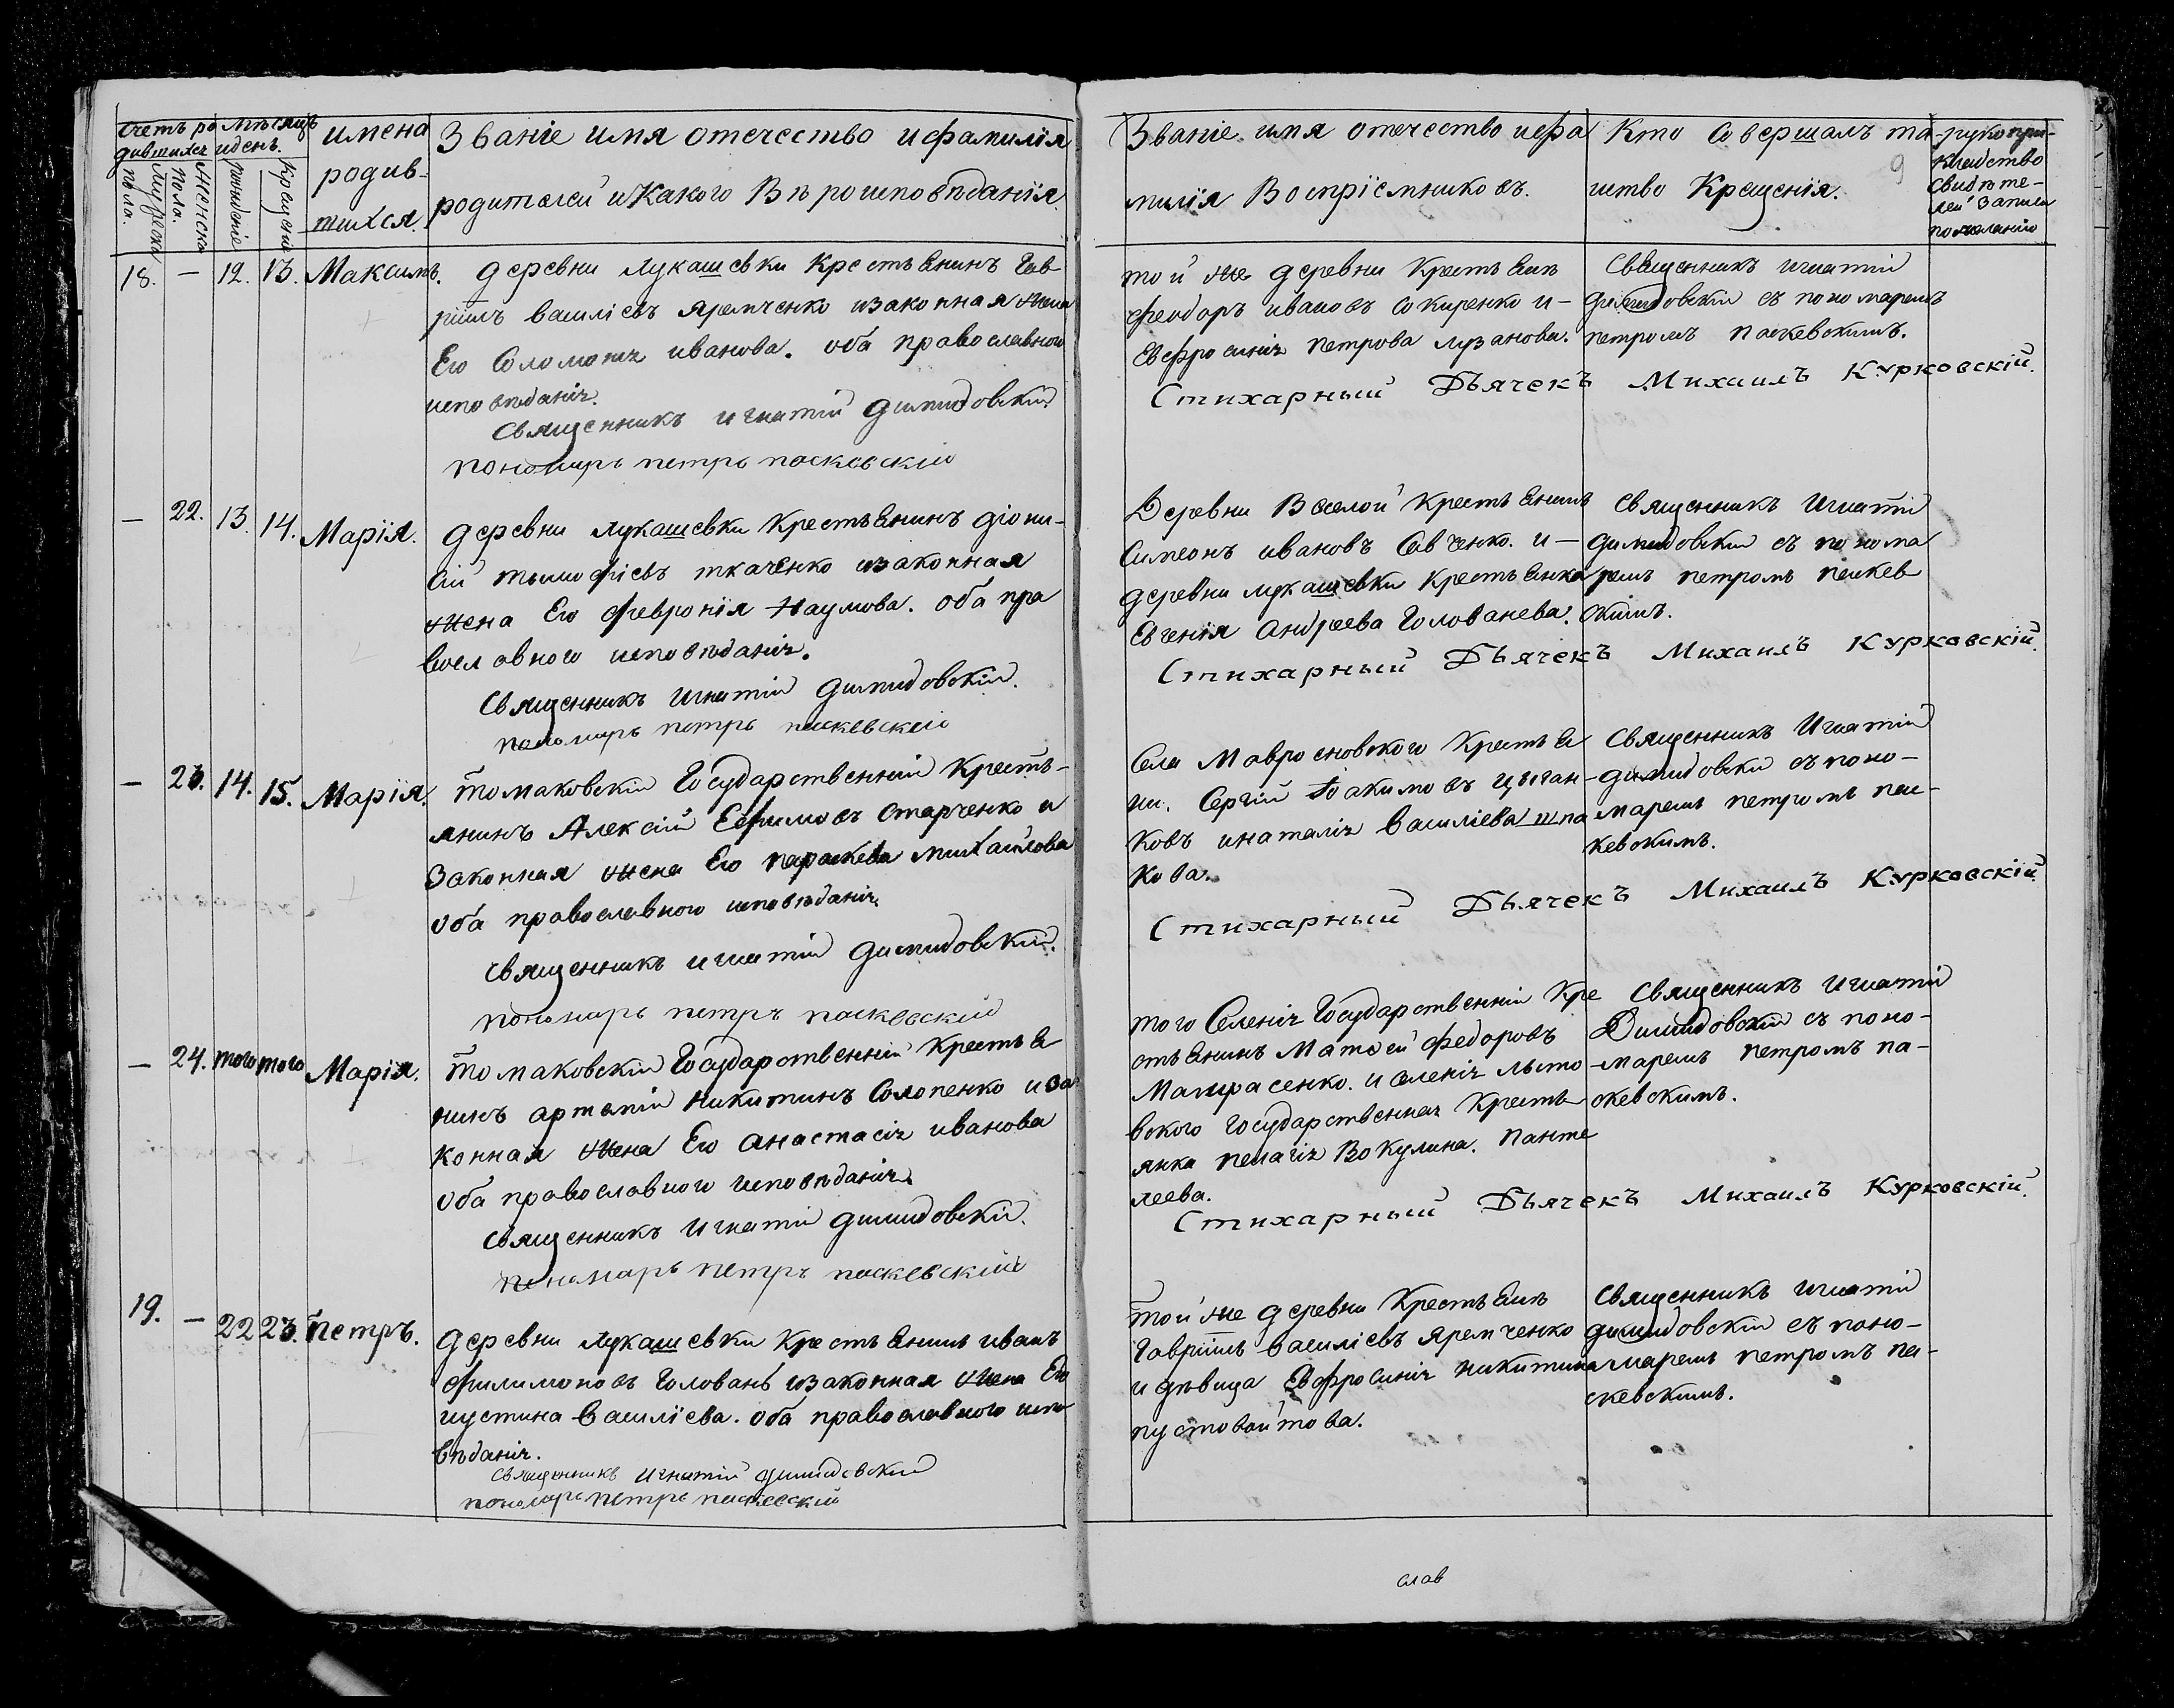 Счетъ ро
дившихся
Мѣсяцъ
и день.
Мужеска
пола.
Женска
пола.
рожденіе
Крещеніе
имена
родив-
шихся.
Званіе имя отечество и фамилія
родителей и Какого Вѣроисповѣданія.
Званіе имя отечество и фа
милія Воспріемниковъ.
Кто Совершалъ та-
инство Крещенія.
9
рукопри-
кладство
свидѣте-
лей записи
по желанію
18. — 12. 13. Максимъ.
деревни Лукашевки Крестьянинъ Гав-
ріилъ василіевъ яремченко и законная жена
Его Соломонія иванова. оба православного
исповѣданія.
Священникъ игнатій димидовскій
пономарь петръ паскевскій
той же деревни Крестьянинъ
феодоръ ивановъ Сокиренко и-
Евфросинія петрова лузанова.
Священникъ игнатій
димидовскій съ пономаремъ
петромъ паскевскимъ.
Стихарный Дьячекъ Михаилъ Курковскій.
— 22. 13. 14. Марія.
деревни Лукашевки Крестьянинъ діони-
сій тимофіевъ ткаченко и законная
жена Его Февронія Наумова. оба пра
вославного исповѣданія.
Священникъ Игнатій димидовскій.
пономарь петръ паскевскій
Деревни Веселой Крестьянинъ
Симеонъ ивановъ Савченко. и-
деревни лукашевки Крестьянка
Евгенія андреева Голованева.
Священникъ Игнатій
димидовскій съ понома
ремъ петромъ паскев
скимъ.
Стихарный Дьячекъ Михаилъ Курковскій.
— 23. 14. 15. Марія.
томаковскій Государственній Кресть-
янинъ Алексій Ефимовъ Старченко и
Законная жена Его параскева михайлова
оба православного исповѣданія.
Священникъ игнатій димидовскій.
пономарь петръ паскевскій
Села Мавросновского Крестья
нин. Сергій Іоакимовъ цыган-
ковъ и наталія василіева шпа
кова.
Священникъ Игнатій
димидовскій съ поно-
маремъ петромъ пас-
кевскимъ.
Стихарный Дьячекъ Михаилъ Курковскій.
— 24. того того Марія.
томаковскій Государственній Крестья
нинъ артемій никитинъ Солопенко и за
конная жена Его анастасія иванова
оба православного исповѣданія.
Священникъ Игнатій димидовскій.
пономарь петръ паскевскій
того Селенія Государственній Кре
стьянинъ Матвей федоровъ
Матрасенко. и селенія лыто
вского Государственная Кресть
янка пелагія Вокулина. Панте
леева.
Священникъ Игнатій
Димидовскій съ поно-
маремъ петромъ па-
скевскимъ.
Стихарный Дьячекъ Михаилъ Курковскій.
19. — 22 23. Петръ.
деревни Лукашевки Крестьянинъ иванъ
филимоновъ Головань и законная жена Его
иустина василіева. оба православного испо
вѣданія.
Священникъ Игнатій димидовскій
пономарь петръ паскевскій
той же деревни Крестьянинъ
Гавріилъ василіевъ яремченко
и дѣвица Евфросинія никитина
пустовойтова.
Священникъ Игнатій
димидовскій съ поно-
маремъ петромъ па-
скевскимъ.
слав